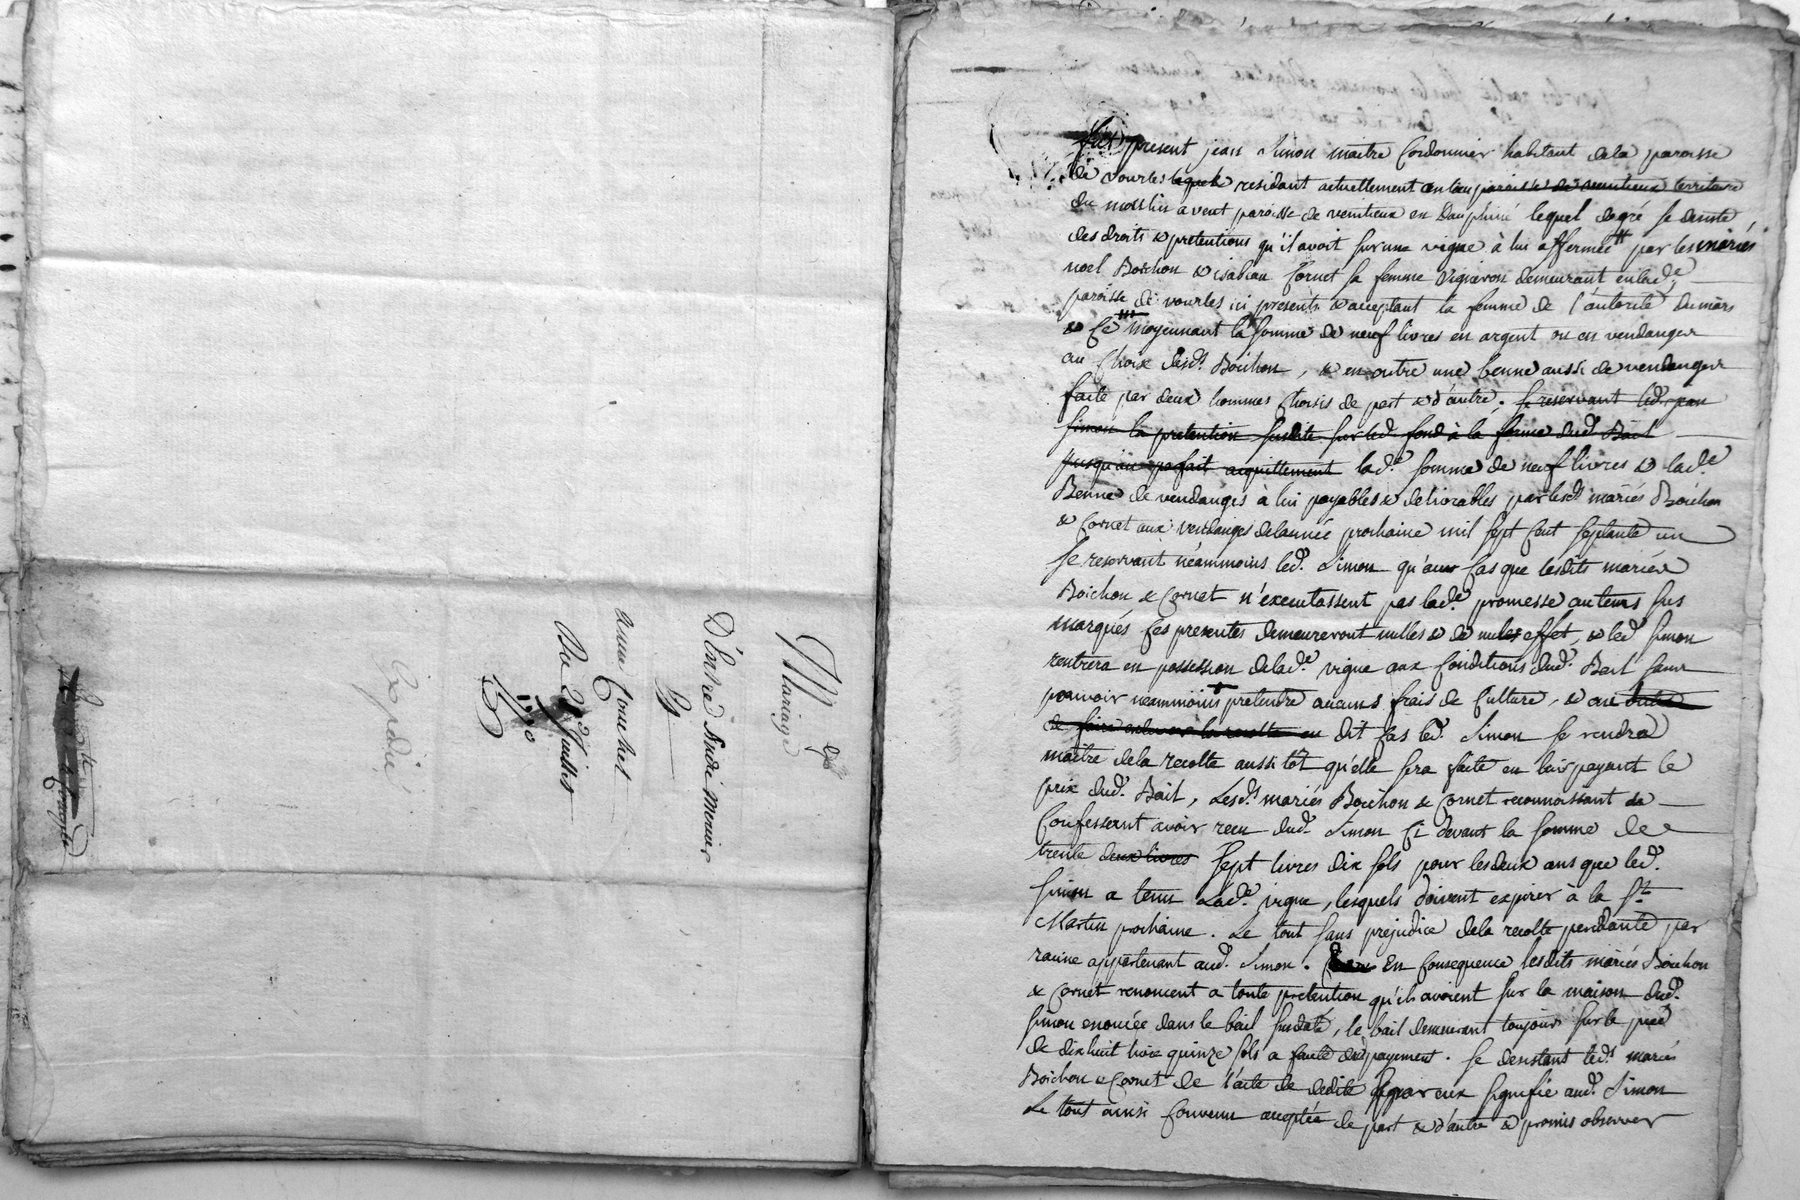 Mariage
D'Entre André Monier
Et
Anne Couchet
Du 23 Juillet
1770
Expédié
present jean Simon maitre Cordonnier habitant dela paroisse
de vourles lequel residant actuellement en lieu paroisse de venitieux territoire
du moulin a vent paroisse de venitieux en Dauphiné lequel degré se demte
des droits & pretentions qu'il avoit sur une vigne à lui affermée par les mariés
noel Boichon & isabeau Cornet sa femme Vigneron demeurant en lade
paroisse de vourles ici presents & acceptant la femme de l'autorité du mary
& Ce moyennant la somme de neuf livres en argent ou en vendanger
au Choix desds Boichon, & en outre une benne aussi de vendanger
faite par deux hommes choisis de part & d'autre. se reservant led. jean
Simon la pretention susdite sur led. fond à la forme dud. Bail
jusqu'au parfait acquittement lade somme de neuf livres & lade
Benne de vendanges à lui payables & delivrables par lesds mariés Boichon
& Cornet aux vendanges delannée prochaine mil sept Cent septante un
se reservant néammoins led. Simon qu'aux Cas que lesdits mariés
Boichon & Cornet n'executassent pas lade promesse au tems sus
marqués Ces presentes demeureront nulles & de nul effet, & led Simon
rentrera en possession delade vigne aux Conditions dud. Bail sans
pouvoir neammoins pretendre aucuns frais de Culture, & au
de faire enlever la recolte en dit Cas led. Simon se rendra
maitre dela recolte aussi tôt qu'elle sera faite en leur payant le
prix dud. Bail, Lesds mariés Boichon & Cornet reconnoissant &
Confessent avoir recu dud. Simon Ci devant la somme de
trente deux livres sept livres dix sols pour les deux ans que led.
Simon a tenu Lade vigne, lesquels doivent expirer à la St
Martin prochaine. Le tout sans prejudice dela recolte pendante par
racine appartenant aud. Simon. En Consequence lesdits mariés Boichon
& Cornet renoncent a toute pretention qu'ils avoient sur la maison dud.
Simon enoncée dans le bail susdaté, le bail demeurant toujours sur le pied
de dixhuit livre quinze sols a faute de payement. Se desistant leds mariés
Boichon & Cornet de l'acte de dedite par eux signifié aud. Simon
Le tout ainsi Convenu accepté de part & d'autre & promis observer